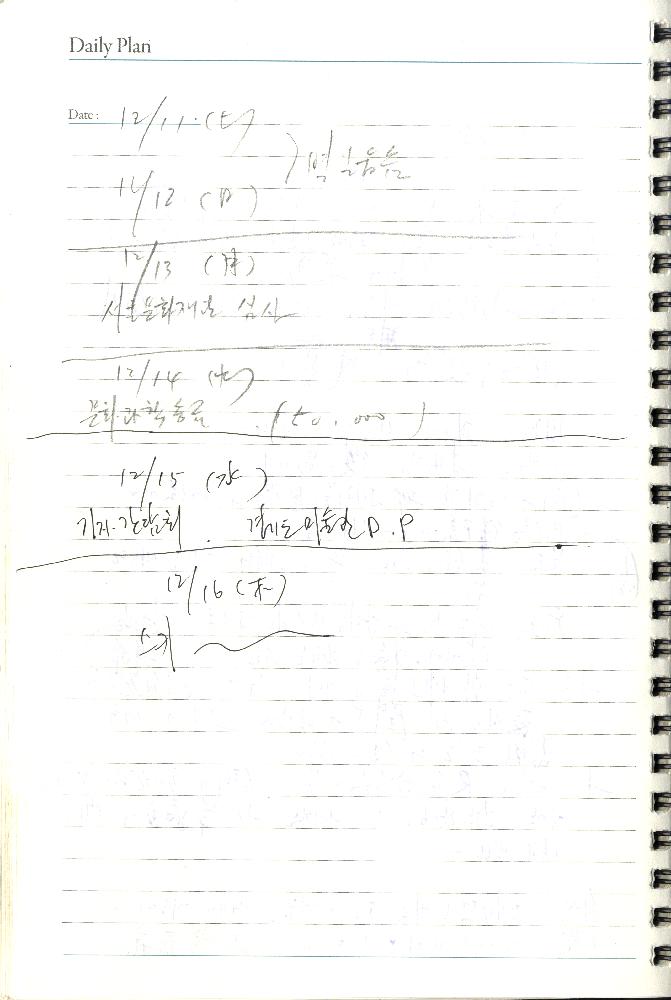 Daily Plan
Date: 12/11 (土)
12/12 (日)
12/13 (月)
서울문화재단 심사
12/14 (火)
문화과학 종료 (50,000)
12/15 (水)
기자간담회. 경기도미술관 D.P
12/16 (木)